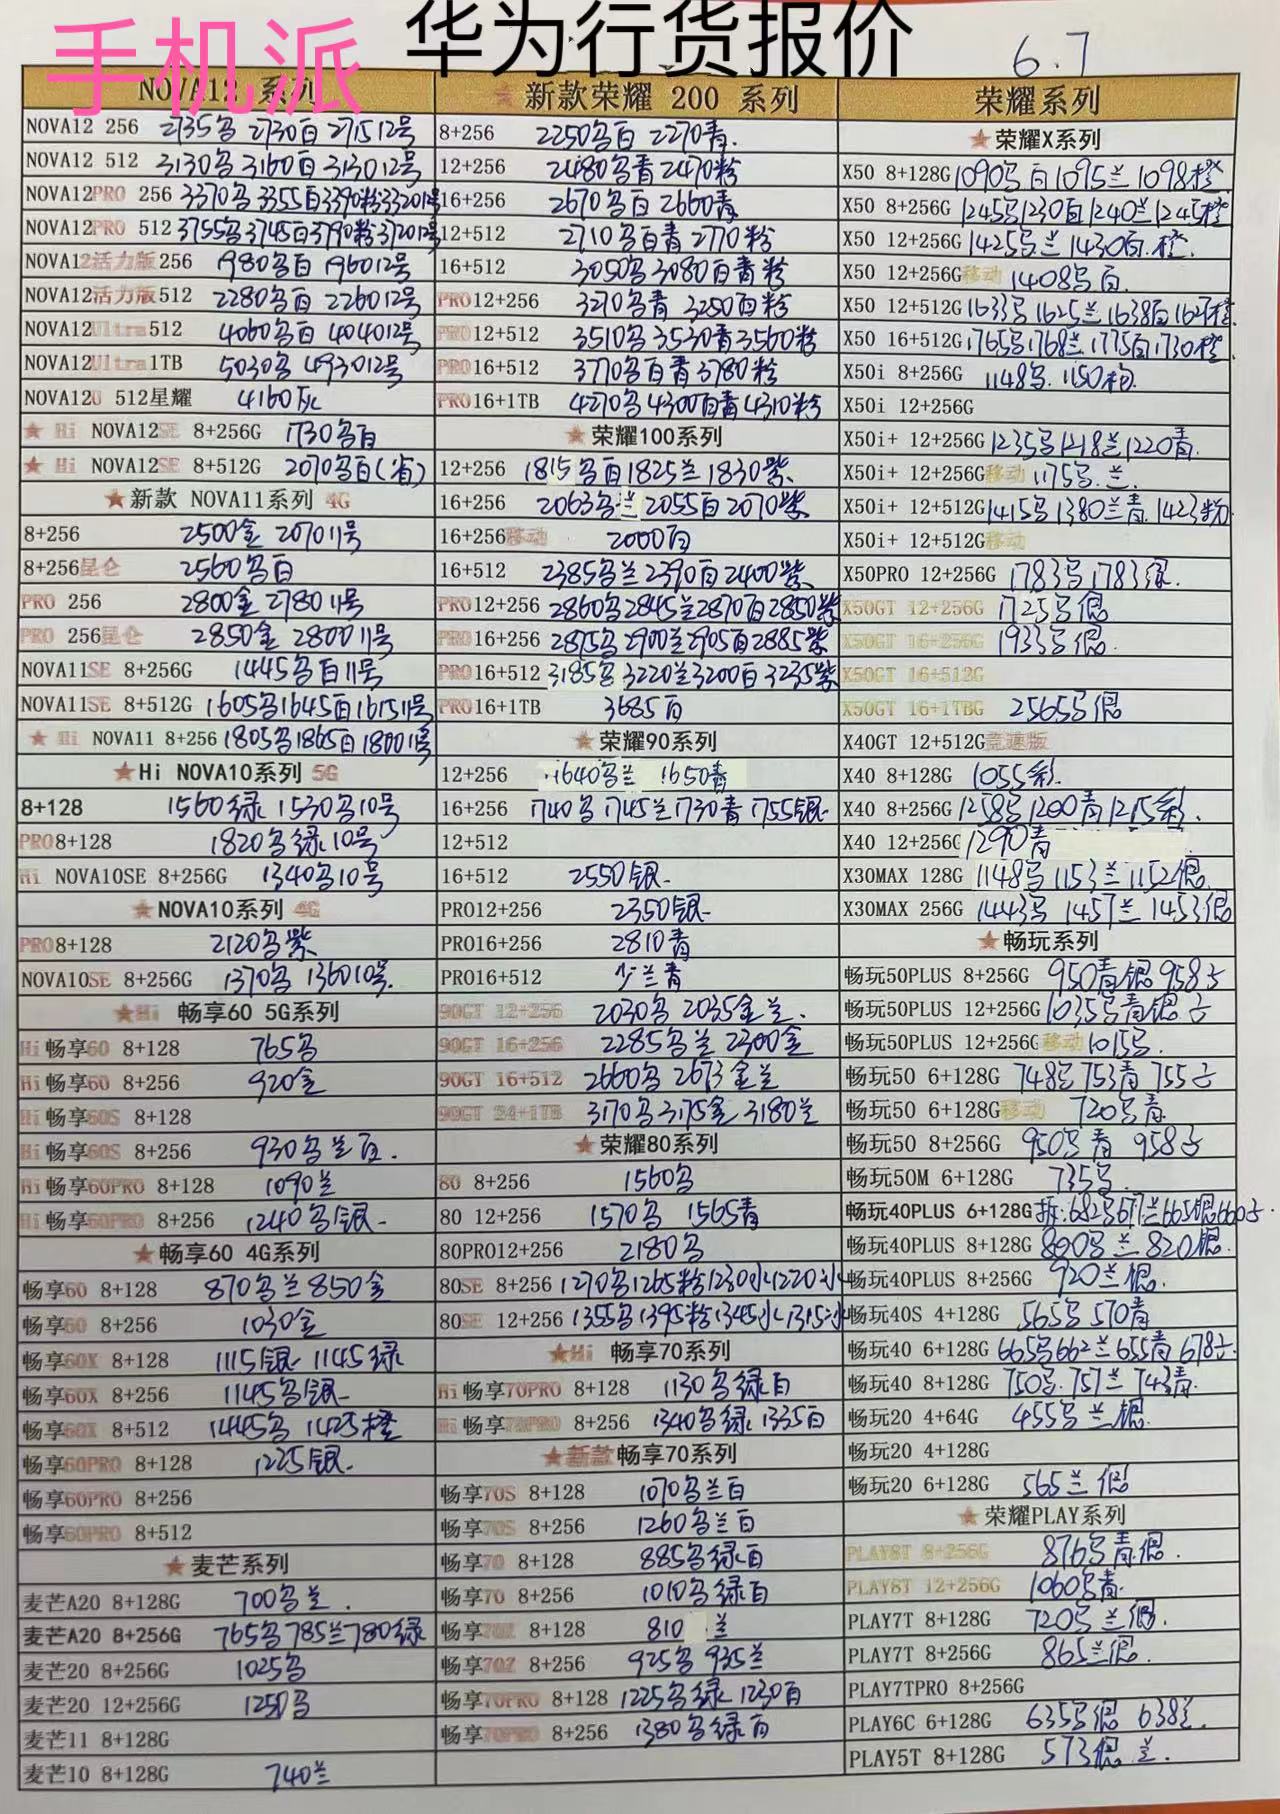 手机派
华为行货报价
6.7
NOVA12 系列
NOVA12 256 2735乌 2730白 2715 12号
NOVA12 512 3130乌 3160白 3130 12号
NOVA12PRO 256 3370乌 3355白 3390粉 3320 12号
NOVA12PRO 512 3755乌 3745白 3790粉 3720 12号
NOVA12活力版 256 1980乌白 1960 12号
NOVA12活力版 512 2280乌白 2260 12号
NOVA12Ultra 512 4060乌白 4040 12号
NOVA12Ultra 1TB 5030乌 4930 12号
NOVA12U 512星耀 4160灰
★ Hi NOVA12SE 8+256G 1730乌白
★ Hi NOVA12SE 8+512G 2070乌白(省)
★新款 NOVA11系列 4G
8+256 2500金 2070 11号
8+256昆仑 2560乌白
PRO 256 2800金 2780 11号
PRO 256昆仑 2850金 2800 11号
NOVA11SE 8+256G 1445乌白 11号
NOVA11SE 8+512G 1605乌 1645白 1615 11号
★ Hi NOVA11 8+256 1805乌 1865白 1800 11号
★Hi NOVA10系列 5G
8+128 1560绿 1530乌 10号
PRO8+128 1820乌绿 10号
Hi NOVA10SE 8+256G 1340乌 10号
★NOVA10系列 4G
PRO8+128 2120乌紫
NOVA10SE 8+256G 1370乌 1360 10号
★Hi 畅享60 5G系列
Hi畅享60 8+128 765乌
Hi畅享60 8+256 920金
Hi畅享60S 8+128
Hi畅享60S 8+256 930乌兰白.
Hi畅享60PRO 8+128 1090兰
Hi畅享60PRO 8+256 1240乌银
★畅享60 4G系列
畅享60 8+128 870乌兰 850金
畅享60 8+256 1030金
畅享60X 8+128 1115银 1145绿
畅享60X 8+256 1145乌银
畅享60X 8+512 1445乌 1425橙
畅享60PRO 8+128 1225银
畅享60PRO 8+256
畅享60PRO 8+512
★麦芒系列
麦芒A20 8+128G 700乌兰.
麦芒A20 8+256G 765乌 785兰 780绿
麦芒20 8+256G 1025乌
麦芒20 12+256G 1250乌
麦芒11 8+128G
麦芒10 8+128G 740兰
★新款荣耀 200 系列
8+256 2250乌白 2270青.
12+256 2480乌青 2470粉
16+256 2670乌白 2660青
12+512 2710乌白青 2770粉
16+512 3050乌 3080白青粉
PRO12+256 3270乌青 3250白粉
PRO12+512 3510乌 3530青 3560粉
PRO16+512 3770乌白青 3780粉
PRO16+1TB 4270乌 4300白青 4310粉
★荣耀100系列
12+256 1815乌白 1825兰 1830紫
16+256 2063乌兰 2055白 2070紫
16+256移动 2000白
16+512 2385乌兰 2390白 2400紫
PRO12+256 2860乌 2845兰 2870白 2850紫
PRO16+256 2875乌 2900兰 2905白 2885紫
PRO16+512 3185乌 3220兰 3200白 3235紫
PRO16+1TB 3685白
★荣耀90系列
12+256 1640乌兰 1650青
16+256 1740乌 1745兰 1730青 1755银
12+512
16+512 2550银
PRO12+256 2350银
PRO16+256 2810青
PRO16+512 少兰青
90GT 12+256 2030乌 2035金兰.
90GT 16+256 2285乌兰 2300金
90GT 16+512 2660乌 2673金兰
90GT 24+1TB 3170乌 3175金 3180兰
★荣耀80系列
80 8+256 1560乌
80 12+256 1570乌 1565青
80PRO12+256 2180乌
80SE 8+256 1270乌 1265粉
80SE 12+256 1355乌 1395粉
★Hi 畅享70系列
Hi畅享70PRO 8+128 1130乌绿白
Hi畅享70PRO 8+256 1340乌绿 1335白
★新款畅享70系列
畅享70S 8+128 1070乌兰白
畅享70S 8+256 1260乌兰白
畅享70 8+128 885乌绿白
畅享70 8+256 1010乌绿白
畅享70Z 8+128 810 兰
畅享70Z 8+256 925乌 935兰
畅享70PRO 8+128 1225乌绿 1230白
畅享70PRO 8+256 1380乌绿白
荣耀系列
★荣耀X系列
X50 8+128G 1090乌白 1095兰 1098橙
X50 8+256G 1245乌 1230白 1240兰 1245橙
X50 12+256G 1425乌兰 1430白.橙.
X50 12+256G移动 1408乌白.
X50 12+512G 1633乌 1625兰 1638白 1627橙
X50 16+512G 1765乌 1768兰 1775白 1730橙
X50i 8+256G 1148乌. 1150粉
X50i 12+256G
X50i+ 12+256G 1235乌 1218兰 1220青
X50i+ 12+256G移动 1175乌.兰.
X50i+ 12+512G 1415乌 1380兰青 1423粉
X50i+ 12+512G移动
X50PRO 12+256G 1783乌 1783绿.
X50GT 12+256G 1725乌银
X50GT 16+256G 1933乌银.
X50GT 16+512G
X50GT 16+1TBG 2565乌银
X40GT 12+512G竞速版
X40 8+128G 1055彩.
X40 8+256G 1258乌 1200青 1215彩.
X40 12+256G 1290青
X30MAX 128G 1148乌 1153兰 1152银
X30MAX 256G 1443乌 1457兰 1453银
★畅玩系列
畅玩50PLUS 8+256G 950青银 958
畅玩50PLUS 12+256G 1035乌青银
畅玩50PLUS 12+256G移动 1015乌.
畅玩50 6+128G 748乌 753青 755
畅玩50 6+128G移动 720乌青
畅玩50 8+256G 950乌青 958
畅玩50M 6+128G 735乌.
畅玩40PLUS 6+128G 682乌 677兰 665银 660
畅玩40PLUS 8+128G 800乌兰 820银.
畅玩40PLUS 8+256G 920兰银.
畅玩40S 4+128G 565乌 570青
畅玩40 6+128G 665乌 662兰 655青 678
畅玩40 8+128G 750乌. 757兰 743青.
畅玩20 4+64G 455乌兰银
畅玩20 4+128G
畅玩20 6+128G 565兰银
★荣耀PLAY系列
PLAY8T 8+256G 876乌青银.
PLAY8T 12+256G 1060乌青.
PLAY7T 8+128G 720乌兰银.
PLAY7T 8+256G 865兰银.
PLAY7TPRO 8+256G
PLAY6C 6+128G 635乌银 638兰.
PLAY5T 8+128G 573银兰.